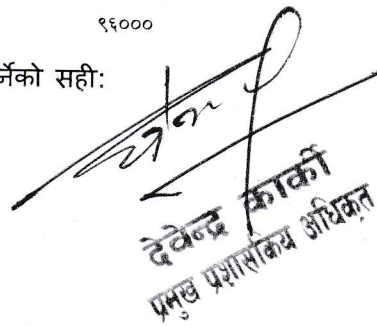 ९६०००
र्नेको सही:
देवेन्द्र कार्की
प्रमुख प्रशासकिय अधिकृत